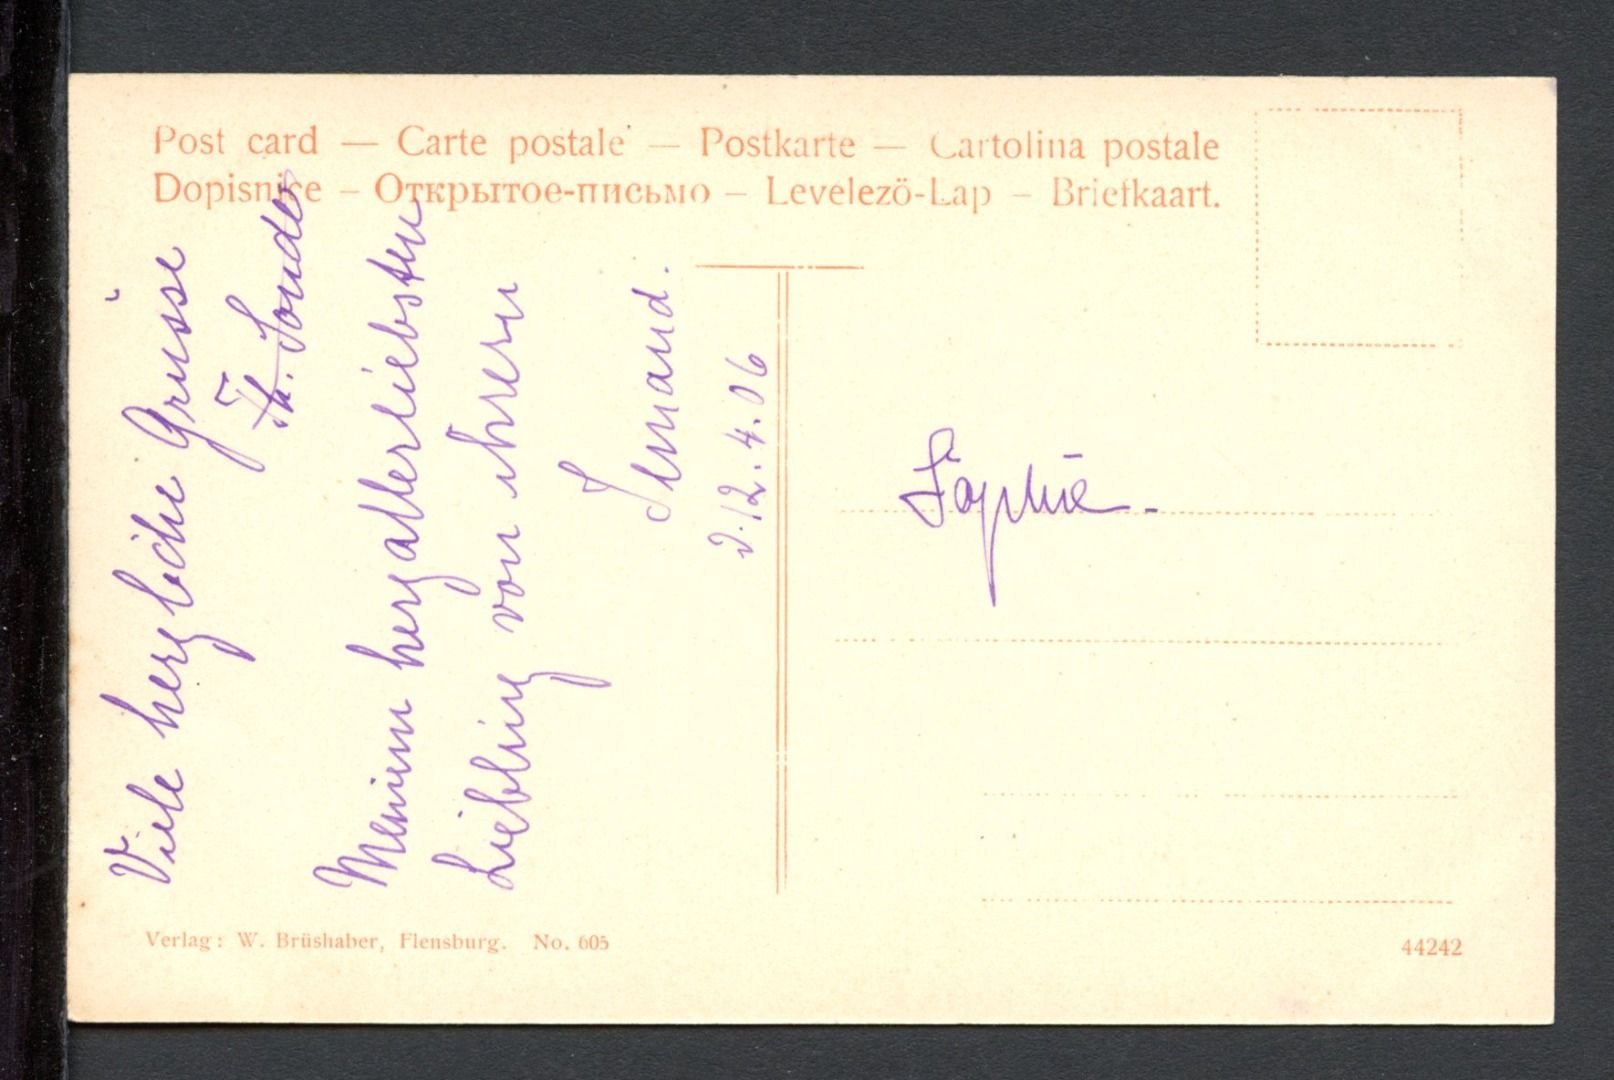 Post card — Carte postale — Postkarte — Cartolina postale
Dopisnice – Открытое-письмо – Levelező-Lap – Briefkaart.
Viele herzliche Grüsse
Th.
Meinem herzallerliebsten
Liebling von ihrem
d. 12.4.06
Sophie.
Verlag: W. Brüshaber, Flensburg. No. 605
44242